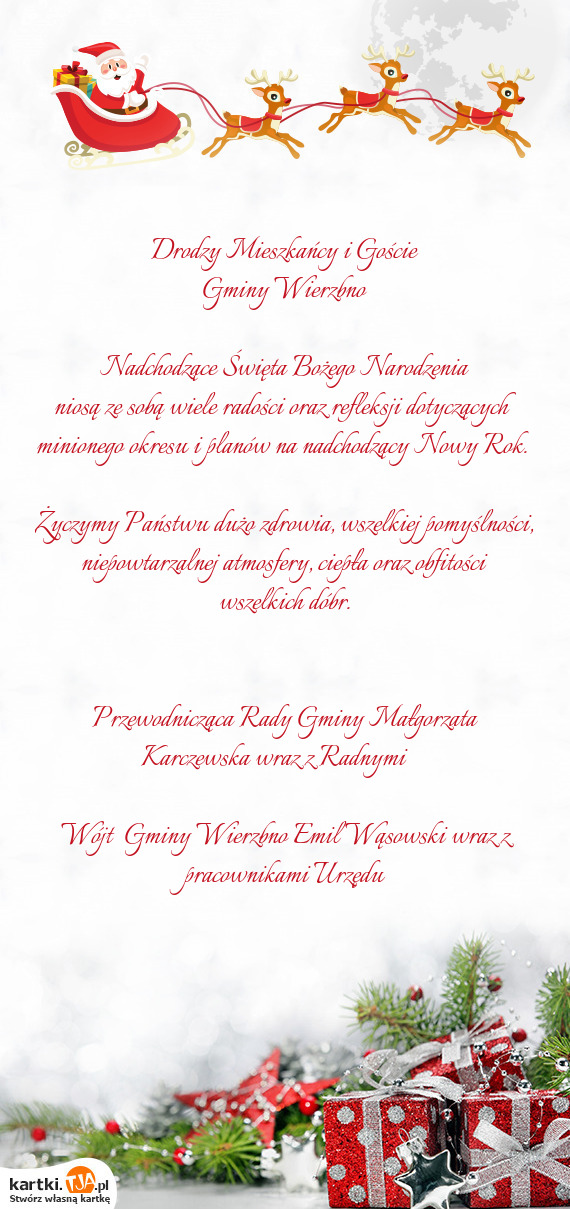 Drodzy Mieszkańcy i Goście
Gminy Wierzbno
Nadchodzące Święta Bożego Narodzenia
niosą ze sobą wiele radości oraz refleksji dotyczących
minionego okresu i planów na nadchodzący Nowy Rok.
Życzymy Państwu dużo zdrowia, wszelkiej pomyślności,
niepowtarzalnej atmosfery, ciepła oraz obfitości
wszelkich dóbr.
Przewodnicząca Rady Gminy Małgorzata
Karczewska wraz z Radnymi
Wójt Gminy Wierzbno Emil Wąsowski wraz z
pracownikami Urzędu
kartki.TJA.pl
Stwórz własną kartkę